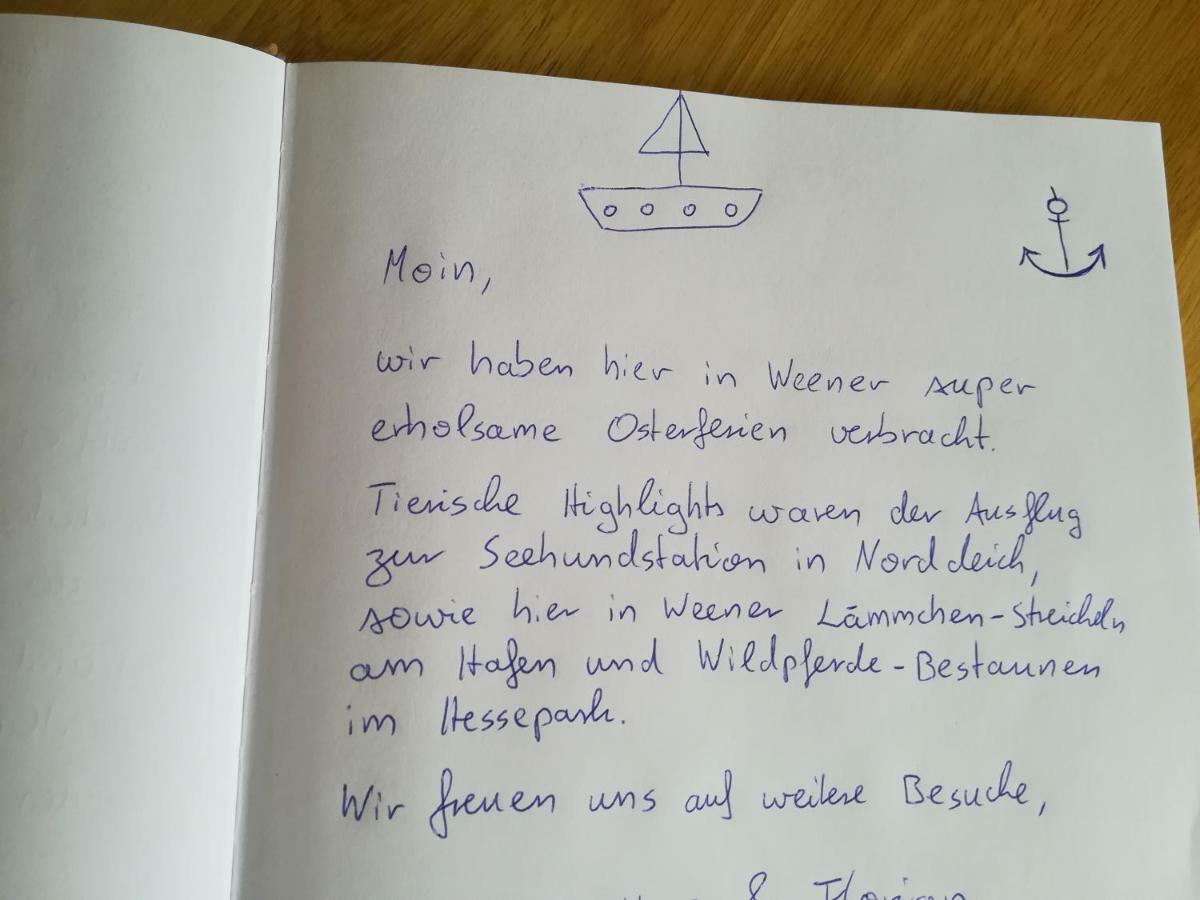 Moin,
wir haben hier in Weener super
erholsame Osterferien verbracht.
Tierische Highlights waren der Ausflug
zur Seehundstation in Norddeich,
sowie hier in Weener Lämmchen-Streicheln
am Hafen und Wildpferde-Bestaunen
im Hessepark.
Wir freuen uns auf weitere Besuche,
& Florian